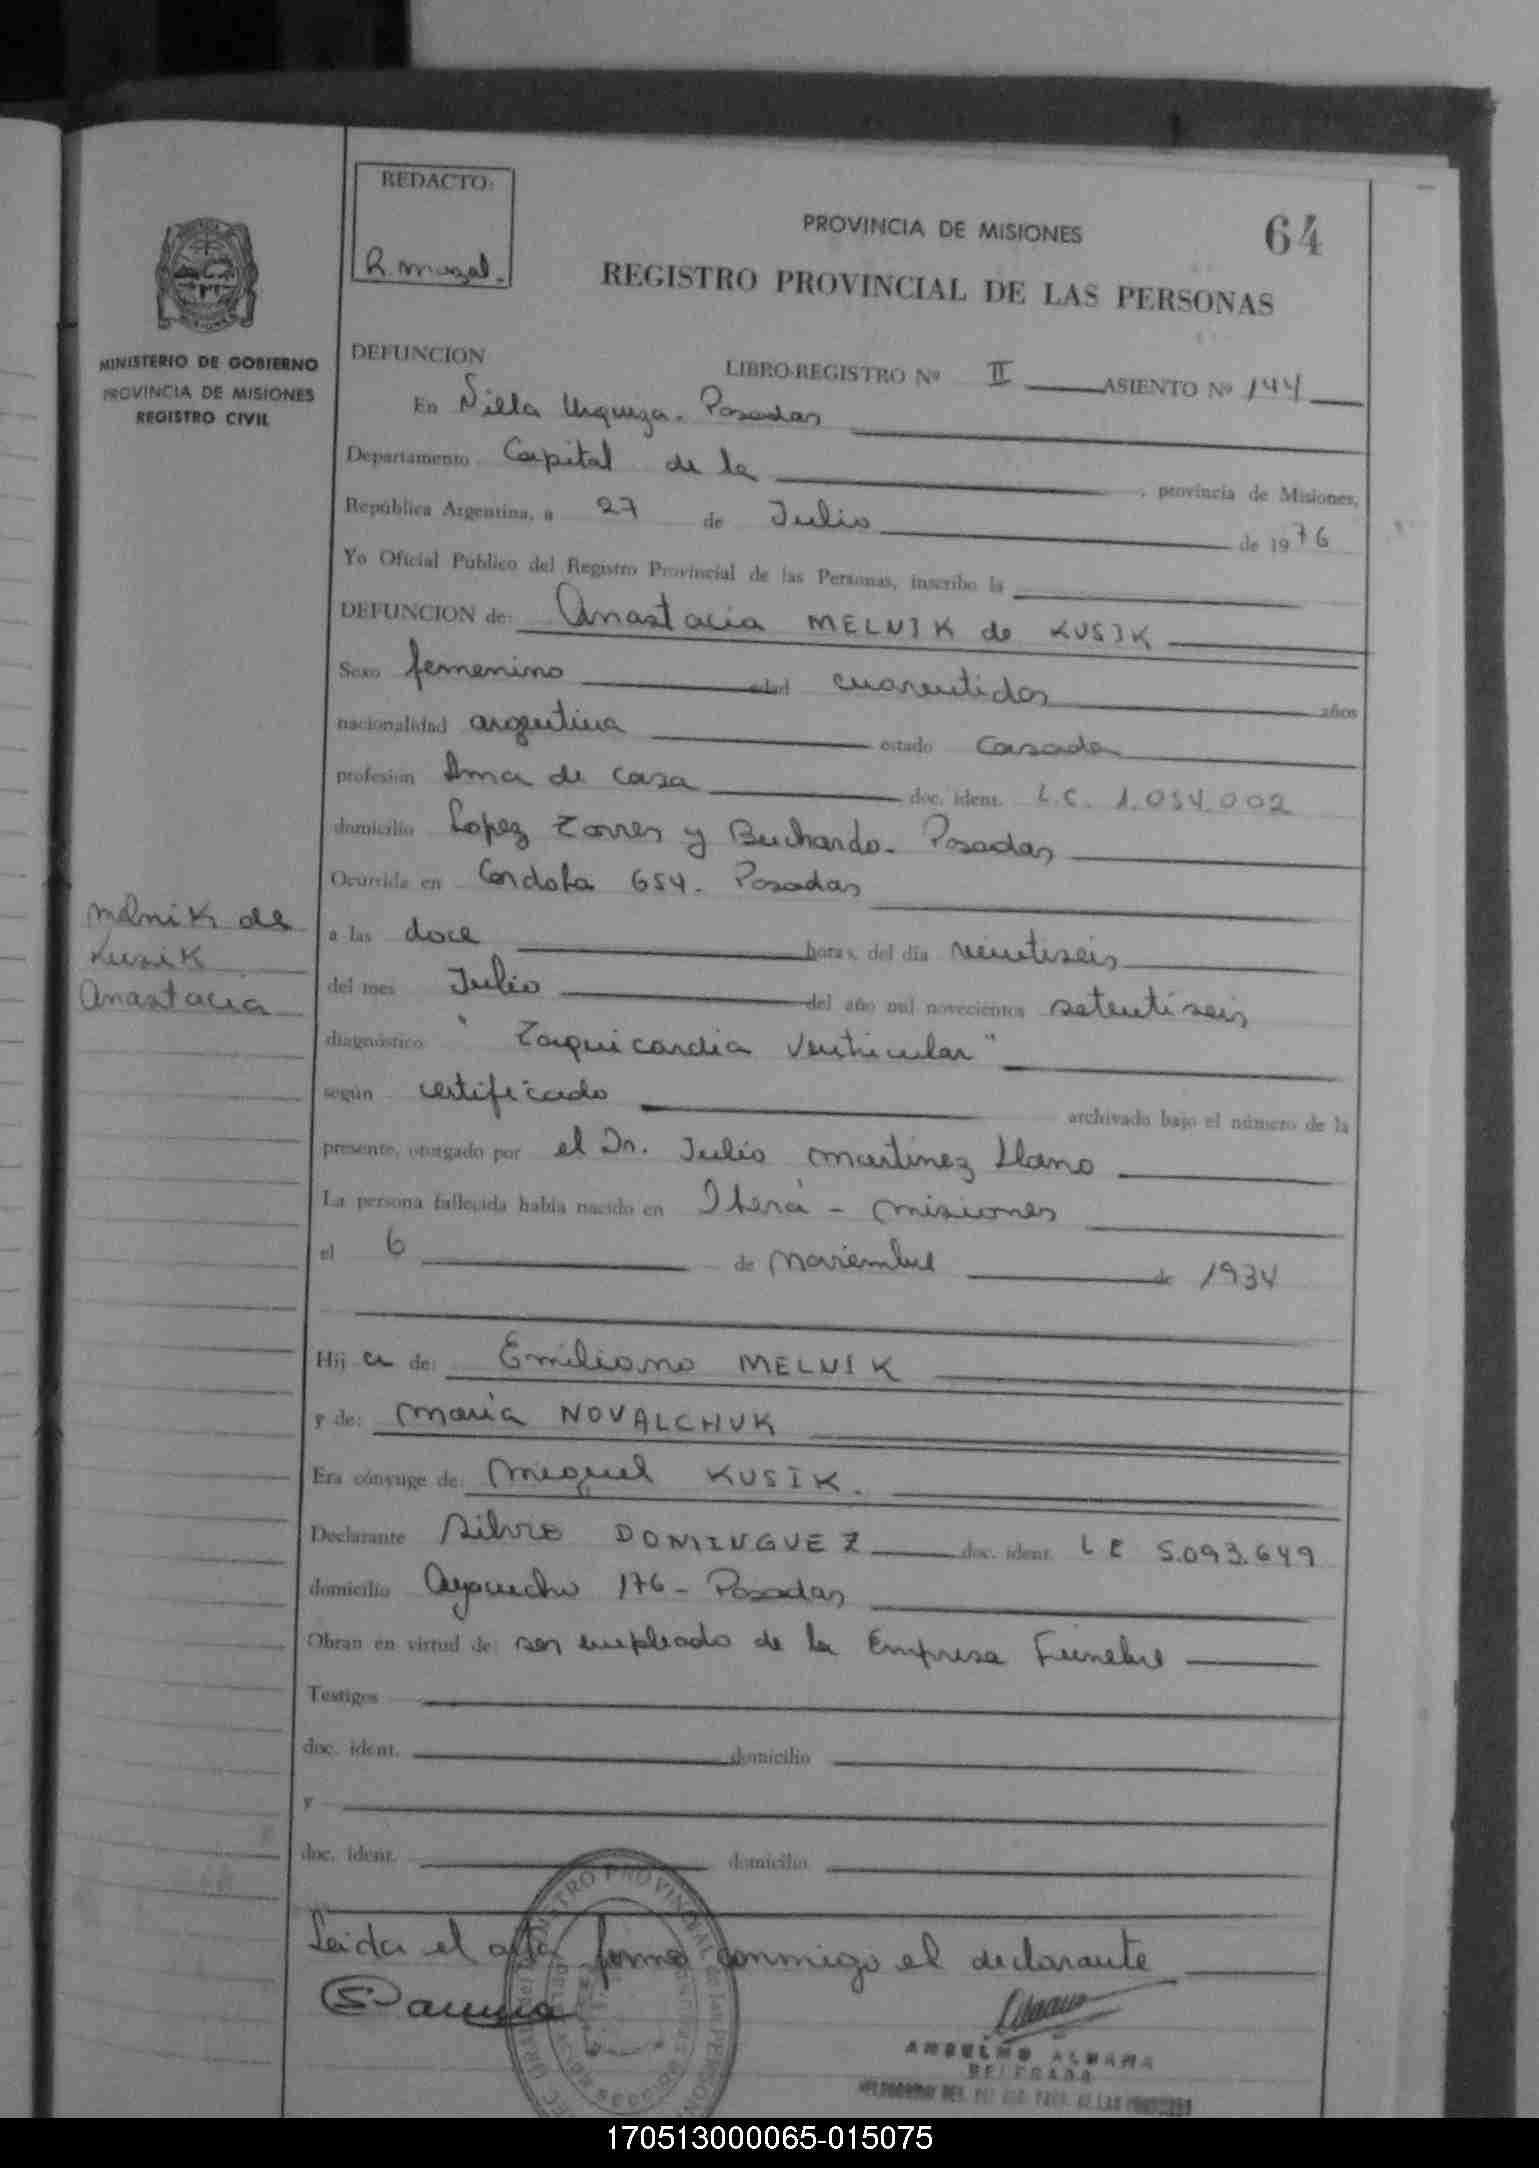 REDACTO:
R. muzal.
64
PROVINCIA DE MISIONES
REGISTRO PROVINCIAL DE LAS PERSONAS
MINISTERIO DE GOBIERNO
PROVINCIA DE MISIONES
REGISTRO CIVIL
DEFUNCION LIBRO-REGISTRO Nº II ASIENTO Nº 144
En Villa Urquiza. Posadas
Departamento Capital de la , provincia de Misiones,
República Argentina, a 27 de Julio de 1976
Yo Oficial Público del Registro Provincial de las Personas, inscribo la
DEFUNCION de: Anastacia MELNIK de KUSIK
Sexo femenino edad cuarentidos años
nacionalidad argentina estado Casada
profesión Ama de casa doc. ident. L.C. 1.054.002
domicilio Lopez Torres y Buchardo. Posadas
Ocurrida en Cordoba 654. Posadas
a las doce horas, del día veintiseis
del mes Julio del año mil novecientos setentiseis
diagnóstico "Taquicardia ventricular"
según certificado archivado bajo el número de la
presente, otorgado por el Dr. Julio Martinez Llano
La persona fallecida había nacido en Iberá - Misiones
el 6 de Noviembre de 1934
Hij a de: Emiliano MELNIK
y de: Maria NOVALCHUK
Era cónyuge de: Miguel KUSIK.
Declarante Silvio DOMINGUEZ doc. ident. LE 5.093.649
domicilio Ayacucho 176 - Posadas
Obran en virtud de ser empleado de la Empresa Funebre
Testigos
doc. ident. domicilio
y
doc. ident. domicilio
Leida el acta firma conmigo el declarante
melnik de
Kusik
Anastacia
REGISTRO PROVINCIAL de las PERSONAS
ANSELMO ALDANA
DELEGADA
170513000065-015075